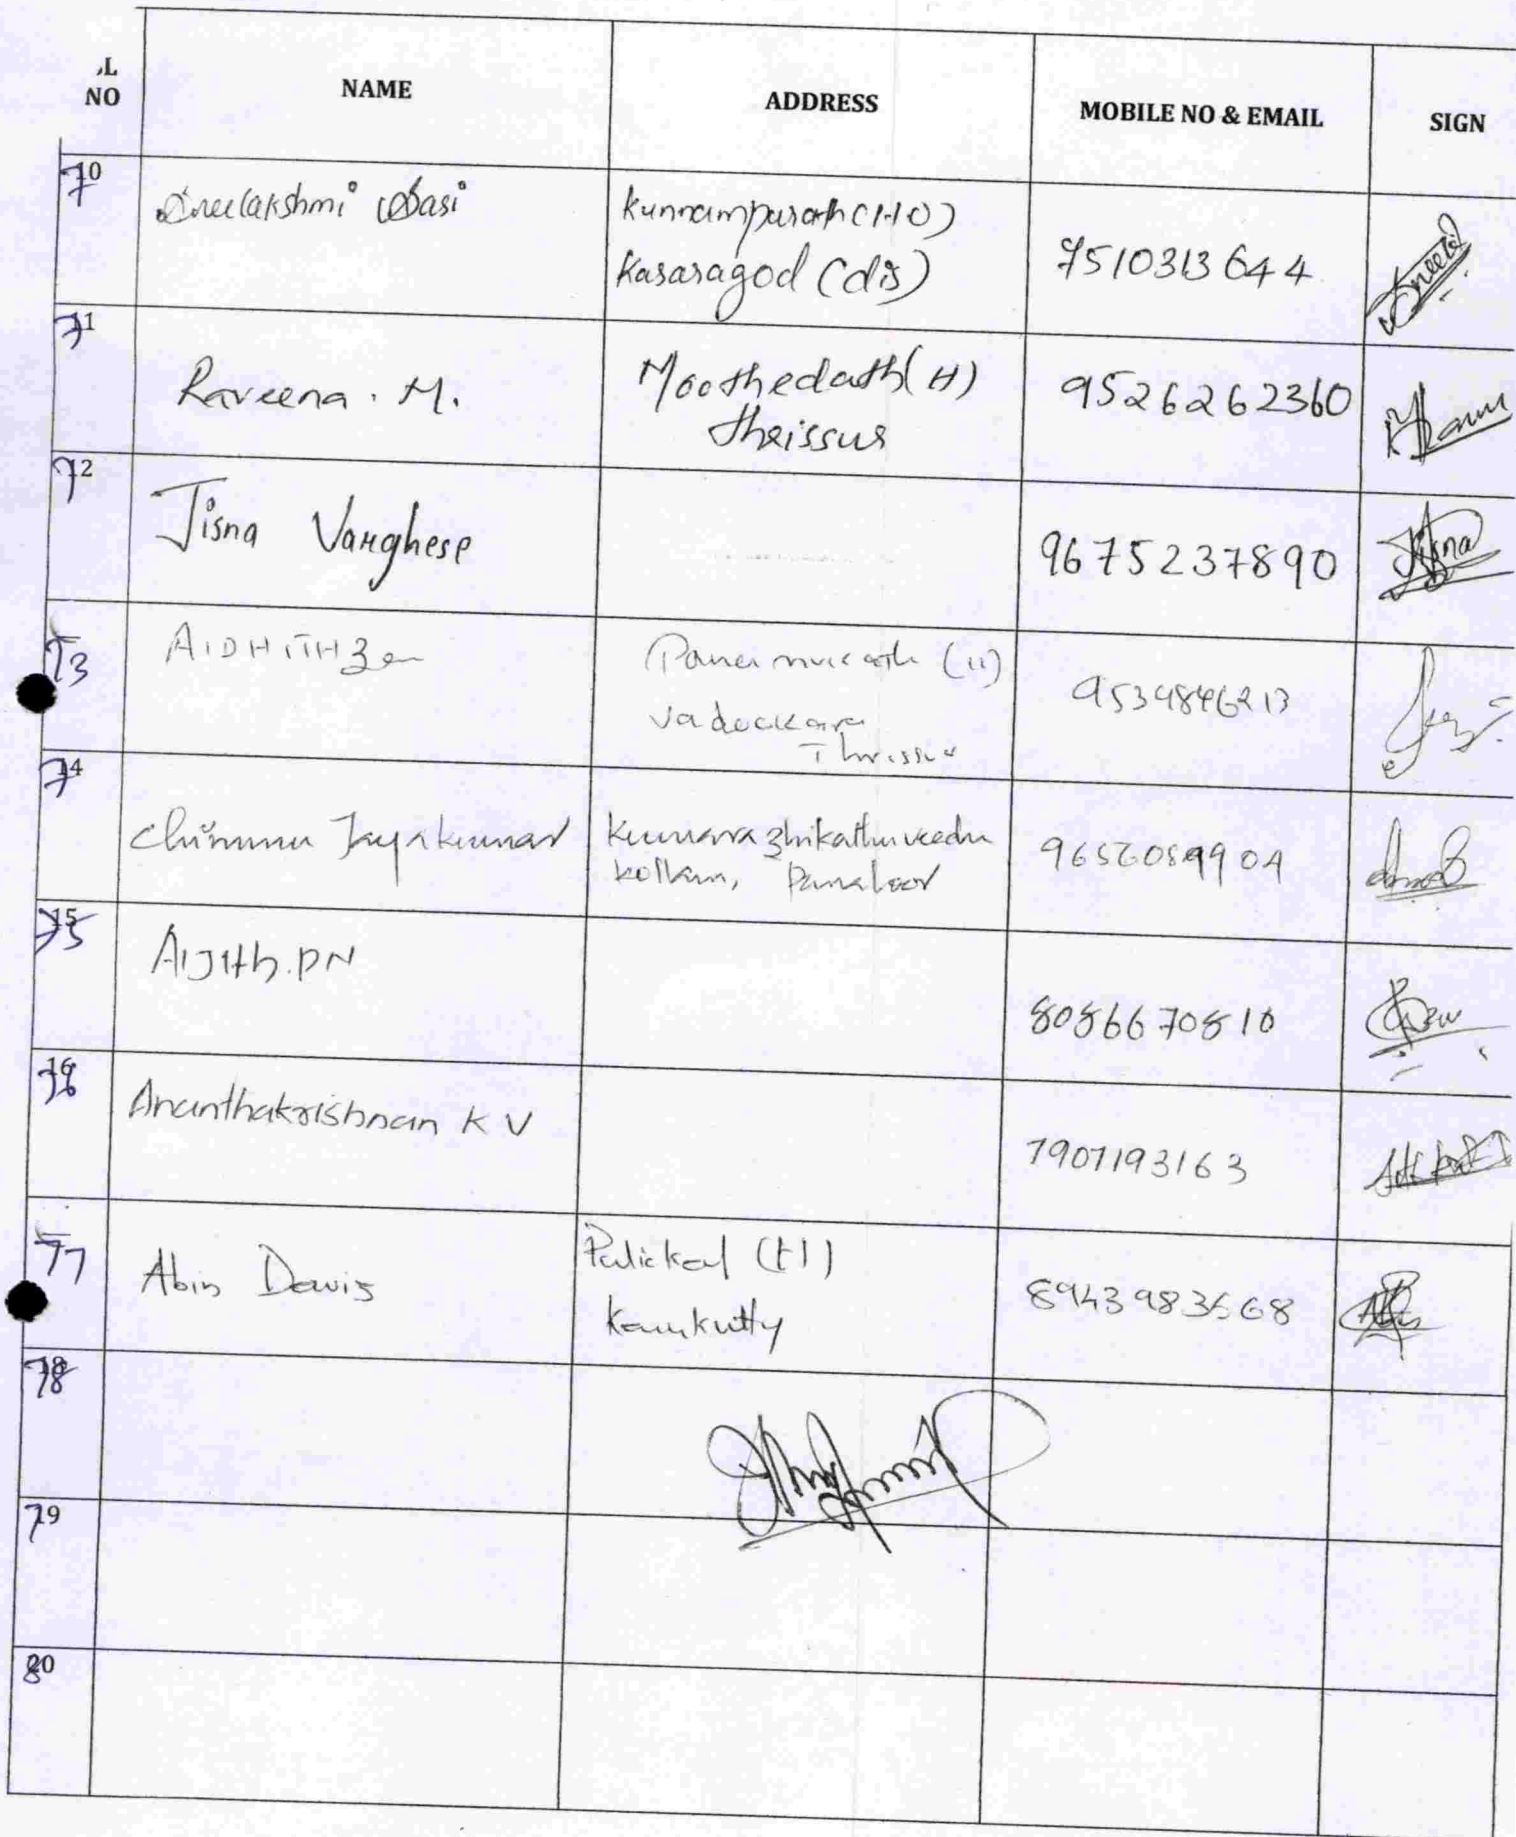 NO NAME ADDRESS MOBILE NO & EMAIL SIGN
70 Sreelakshmi Sasi Kunnampurath (HO)
Kasaragod (dis) 7510313644
71 Raveena. M. Moothedath (H) 9526262360
thrissur
72 Jisna Varghese 9675237890 Jisna
73 AIDHITH 9534846213
vadookara
Thrissur
74 Chinnu Jayakumar Kumarazhikathu veedu
kollam, Punaloor
75 AIJITH. PN 8086670810
76 Ananthakrishnan K V 7907193163
77 Abin Davis Pulickal (H) 8943983568
78
79
80